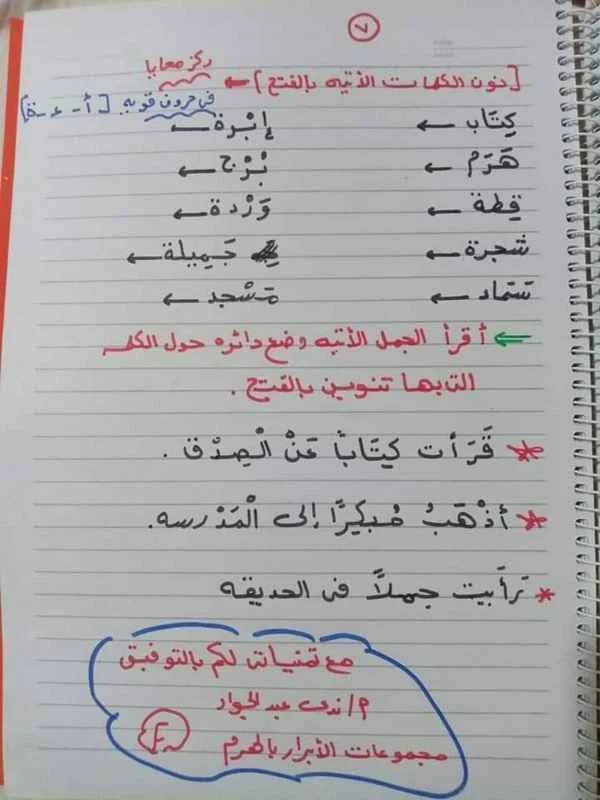 ٧
ركز معايا
[نون الكلمات الأتيه بالفتح] ←
فى حروف قويه [أ - ء - ة]
كِتَاب ← إبْرة ←
هَرَم ← بُرْج ←
قِطة ← وَرْدة ←
شجرة ← جَمِيلة ←
← مَسْجد ←
⇐ أقرأ الجمل الأتيه وضع دائره حول الكلمه
التى بها تنوين بالفتح .
* قَرَأت كِتَاباً عَنْ الْصِدْق .
* أذْهَبُ مُبكِرًا إلى الْمَدْرسه.
* رَأيت جملاً فى الحديقه
مع تمنياتى لكم بالتوفيق
م/ندى عبد الجواد
مجموعات الأبرار بالهرم